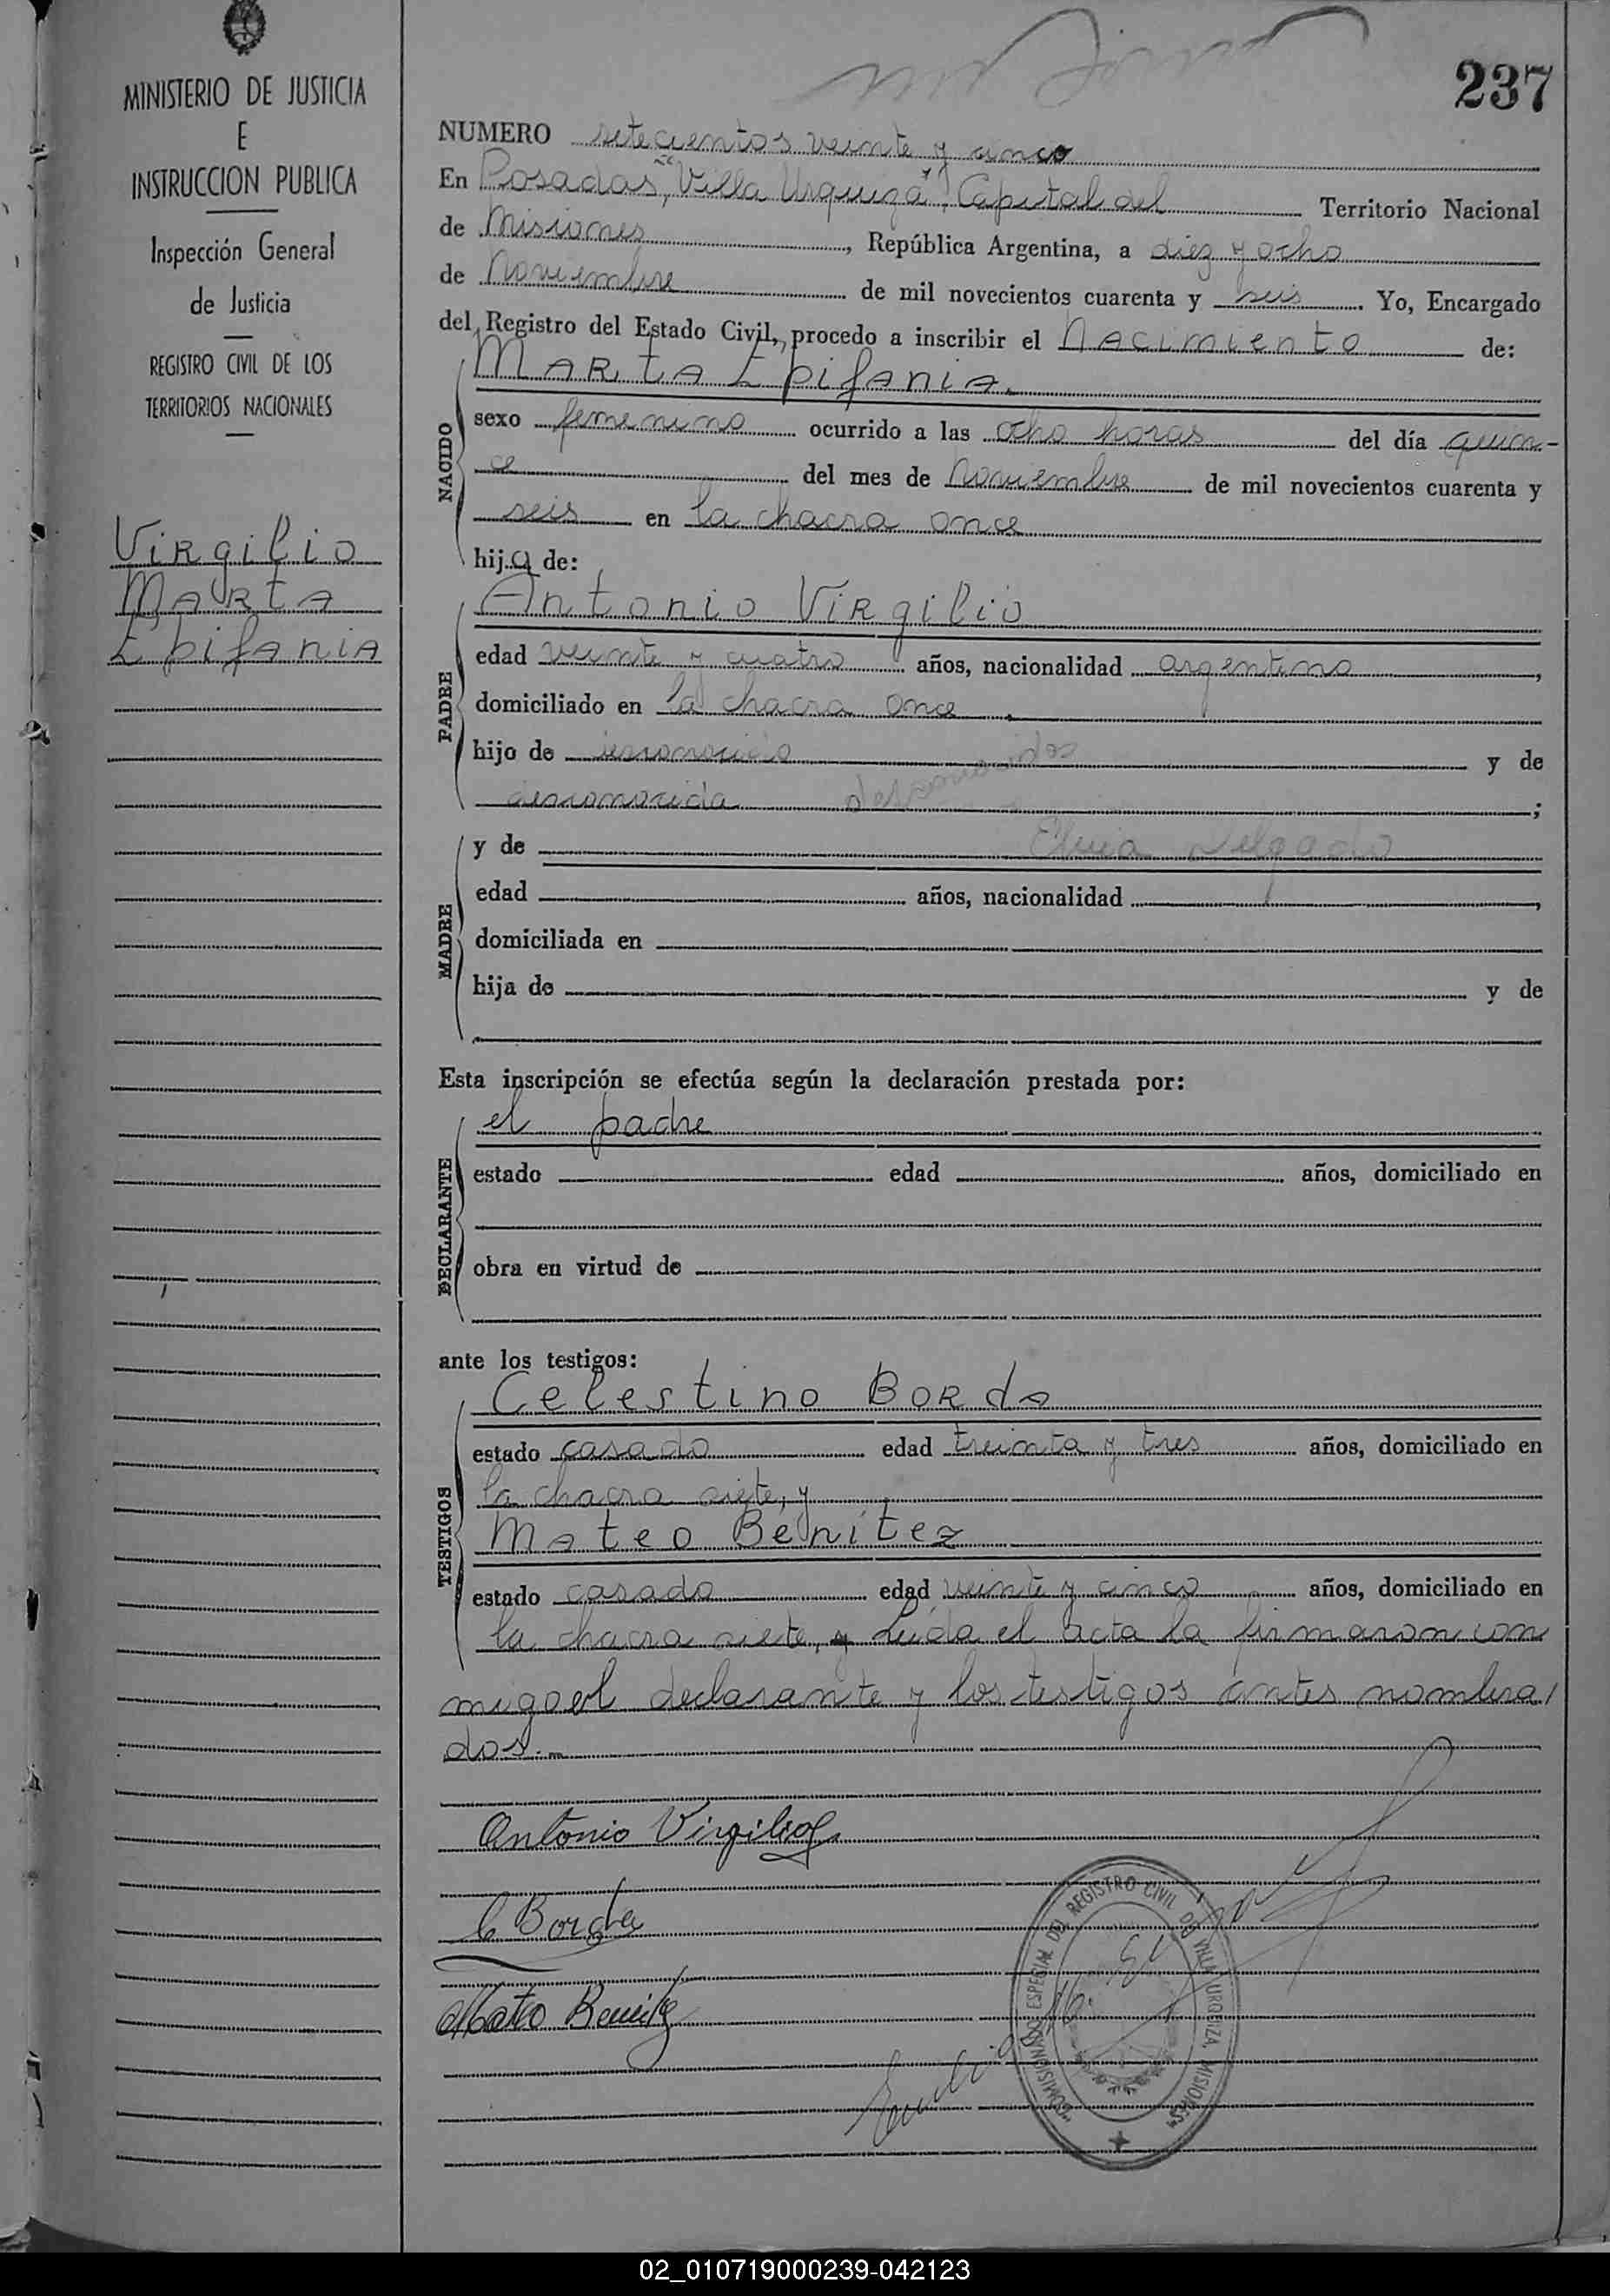 MINISTERIO DE JUSTICIA
E
INSTRUCCION PUBLICA
Inspección General
de Justicia
REGISTRO CIVIL DE LOS
TERRITORIOS NACIONALES
Virgilio
Marta
Epifania
237
NUMERO setecientos veinte y cinco
En Posadas, "Villa Urquiza", Capital del Territorio Nacional
de Misiones, República Argentina, a diez y ocho
de Noviembre de mil novecientos cuarenta y seis. Yo, Encargado
del Registro del Estado Civil, procedo a inscribir el Nacimiento de:
NACIDO
Marta Epifania.
sexo femenino ocurrido a las ocho horas del día quin-
ce del mes de Noviembre de mil novecientos cuarenta y
seis en la chacra once
hija de:
PADRE
Antonio Virgilio
edad veinte y cuatro años, nacionalidad argentino,
domiciliado en la chacra once.
hijo de desconocido y de
desconocida desconocidos;
MADRE
y de Delgado
edad años, nacionalidad,
domiciliada en
hija de y de
Esta inscripción se efectúa según la declaración prestada por:
DECLARANTE
el padre
estado edad años, domiciliado en
obra en virtud de
ante los testigos:
TESTIGOS
Celestino Borda
estado casado edad treinta y tres años, domiciliado en
la chacra siete, y
Mateo Benítez
estado casado edad veinte y cinco años, domiciliado en
la chacra siete, y Leída el acta la firmaron con
migo el declarante y los testigos antes nombra/
dos.-
Antonio Virgilio
C Borda
Mateo Benitez
COMISIONADO ESPECIAL DEL REGISTRO CIVIL DE VILLA URQUIZA, MISIONES
02_010719000239-042123